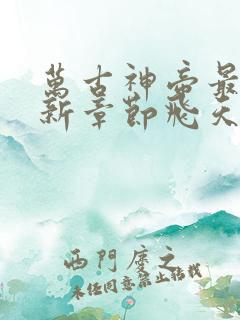 萬古神帝最
新章節飛天
西門慶之
未任同意禁止转载